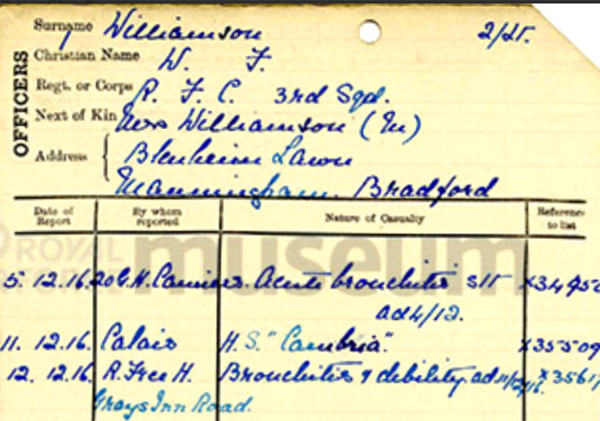 Surname Williamson 2/Lt.
Christian Name W. F.
OFFICERS
Regt. or Corps R. F. C. 3rd Sqd.
Next of Kin Mrs Williamson (M)
Address Blenheim Lawn
Manningham, Bradford
Date of Report By whom reported Nature of Casualty Reference to list
ROYAL museum
5. 12.16. 20 G.H. Camiers. Acute bronchitis slt
ad 4/12.
11. 12.16. Calais H.S. "Cambria".
12. 12.16. R. Free H. Bronchitis & debility ad 11/12/16.
Grays Inn Road.